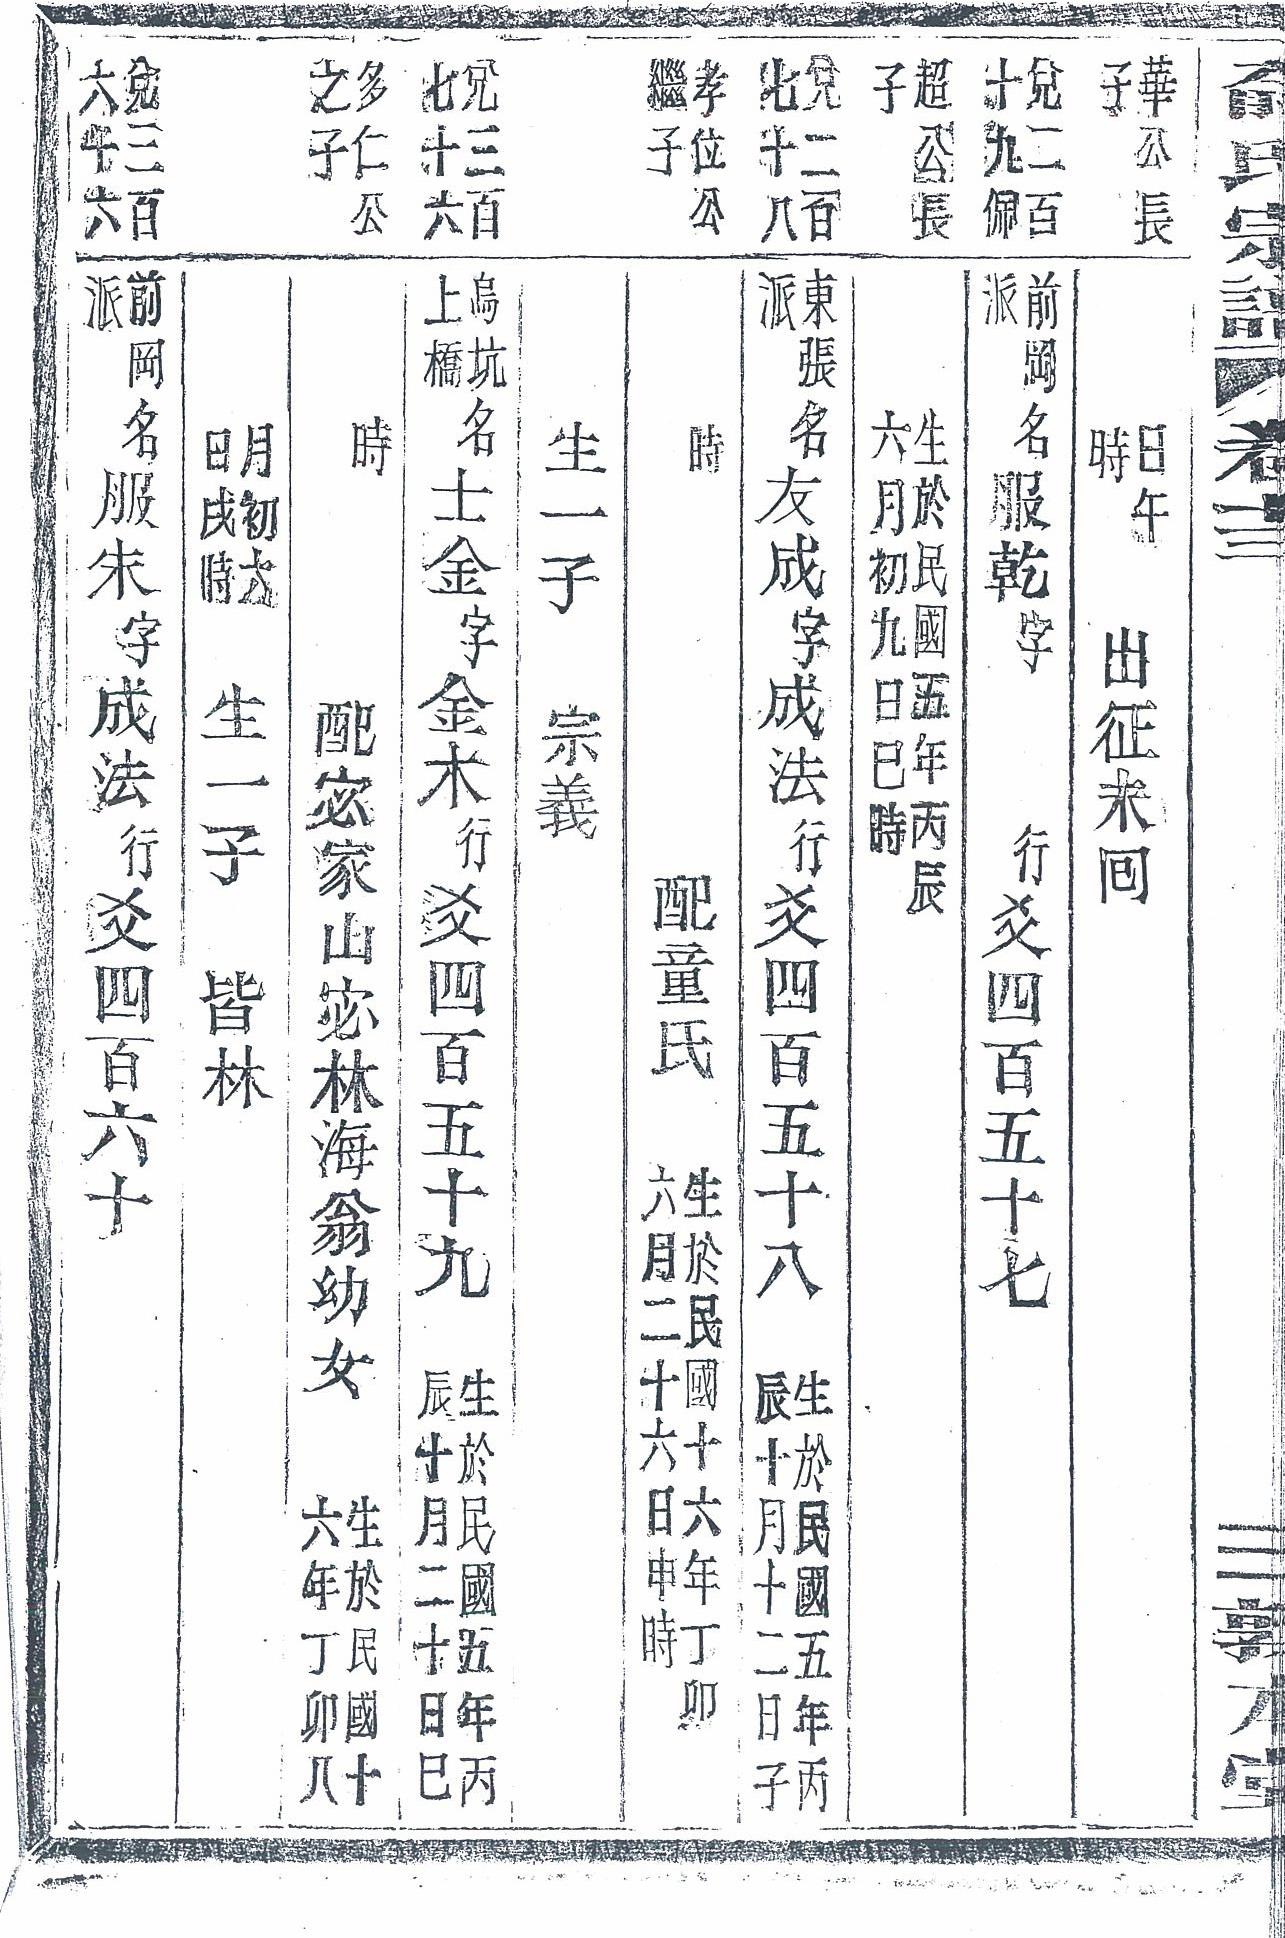 氏宗譜 卷
華公長
子
日午
時
出征未回
兌二百
十九佩
前岡
派
名服乾字 行爻四百五十七
超公長
子
生於民國五年丙辰
六月初九日巳時
兌二百
七十八
東張
派
名友成字成法行爻四百五十八
生於民國五年丙
辰十月十二日子
孝位公
繼子
時
配童氏
生於民國十六年丁卯
六月二十六日申時
生一子 宗義
兌三百
七十六
烏坑
上橋
名士金字金木行爻四百五十九
生於民國五年丙
辰十月二十日巳
多仁公
之子
時
配宓家山宓林海翁幼女
生於民國十
六年丁卯八
月初六
日戌時
生一子 皆林
兌三百
六十六
前岡
派
名服朱字成法行爻四百六十